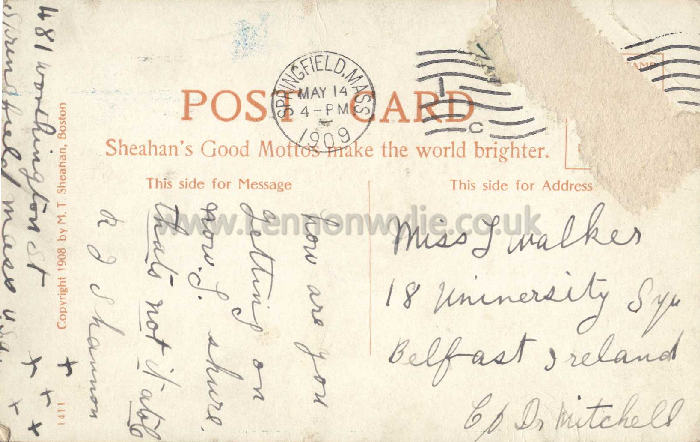 POST CARD
Sheahan's Good Mottos make the world brighter.
This side for Message
This side for Address
SPRINGFIELD, MASS.
MAY 14
4-PM
1909
1
C
how are you
getting on
now. L. shure.
thats not it atole
R J Shannon
481 Worthington St
Springfield Mass USA.
Miss L Walker
18 University Squ
Belfast Ireland
C/O Dr Mitchell
Copyright 1908 by M. T. Sheahan, Boston
1411
www.lennonwylie.co.uk